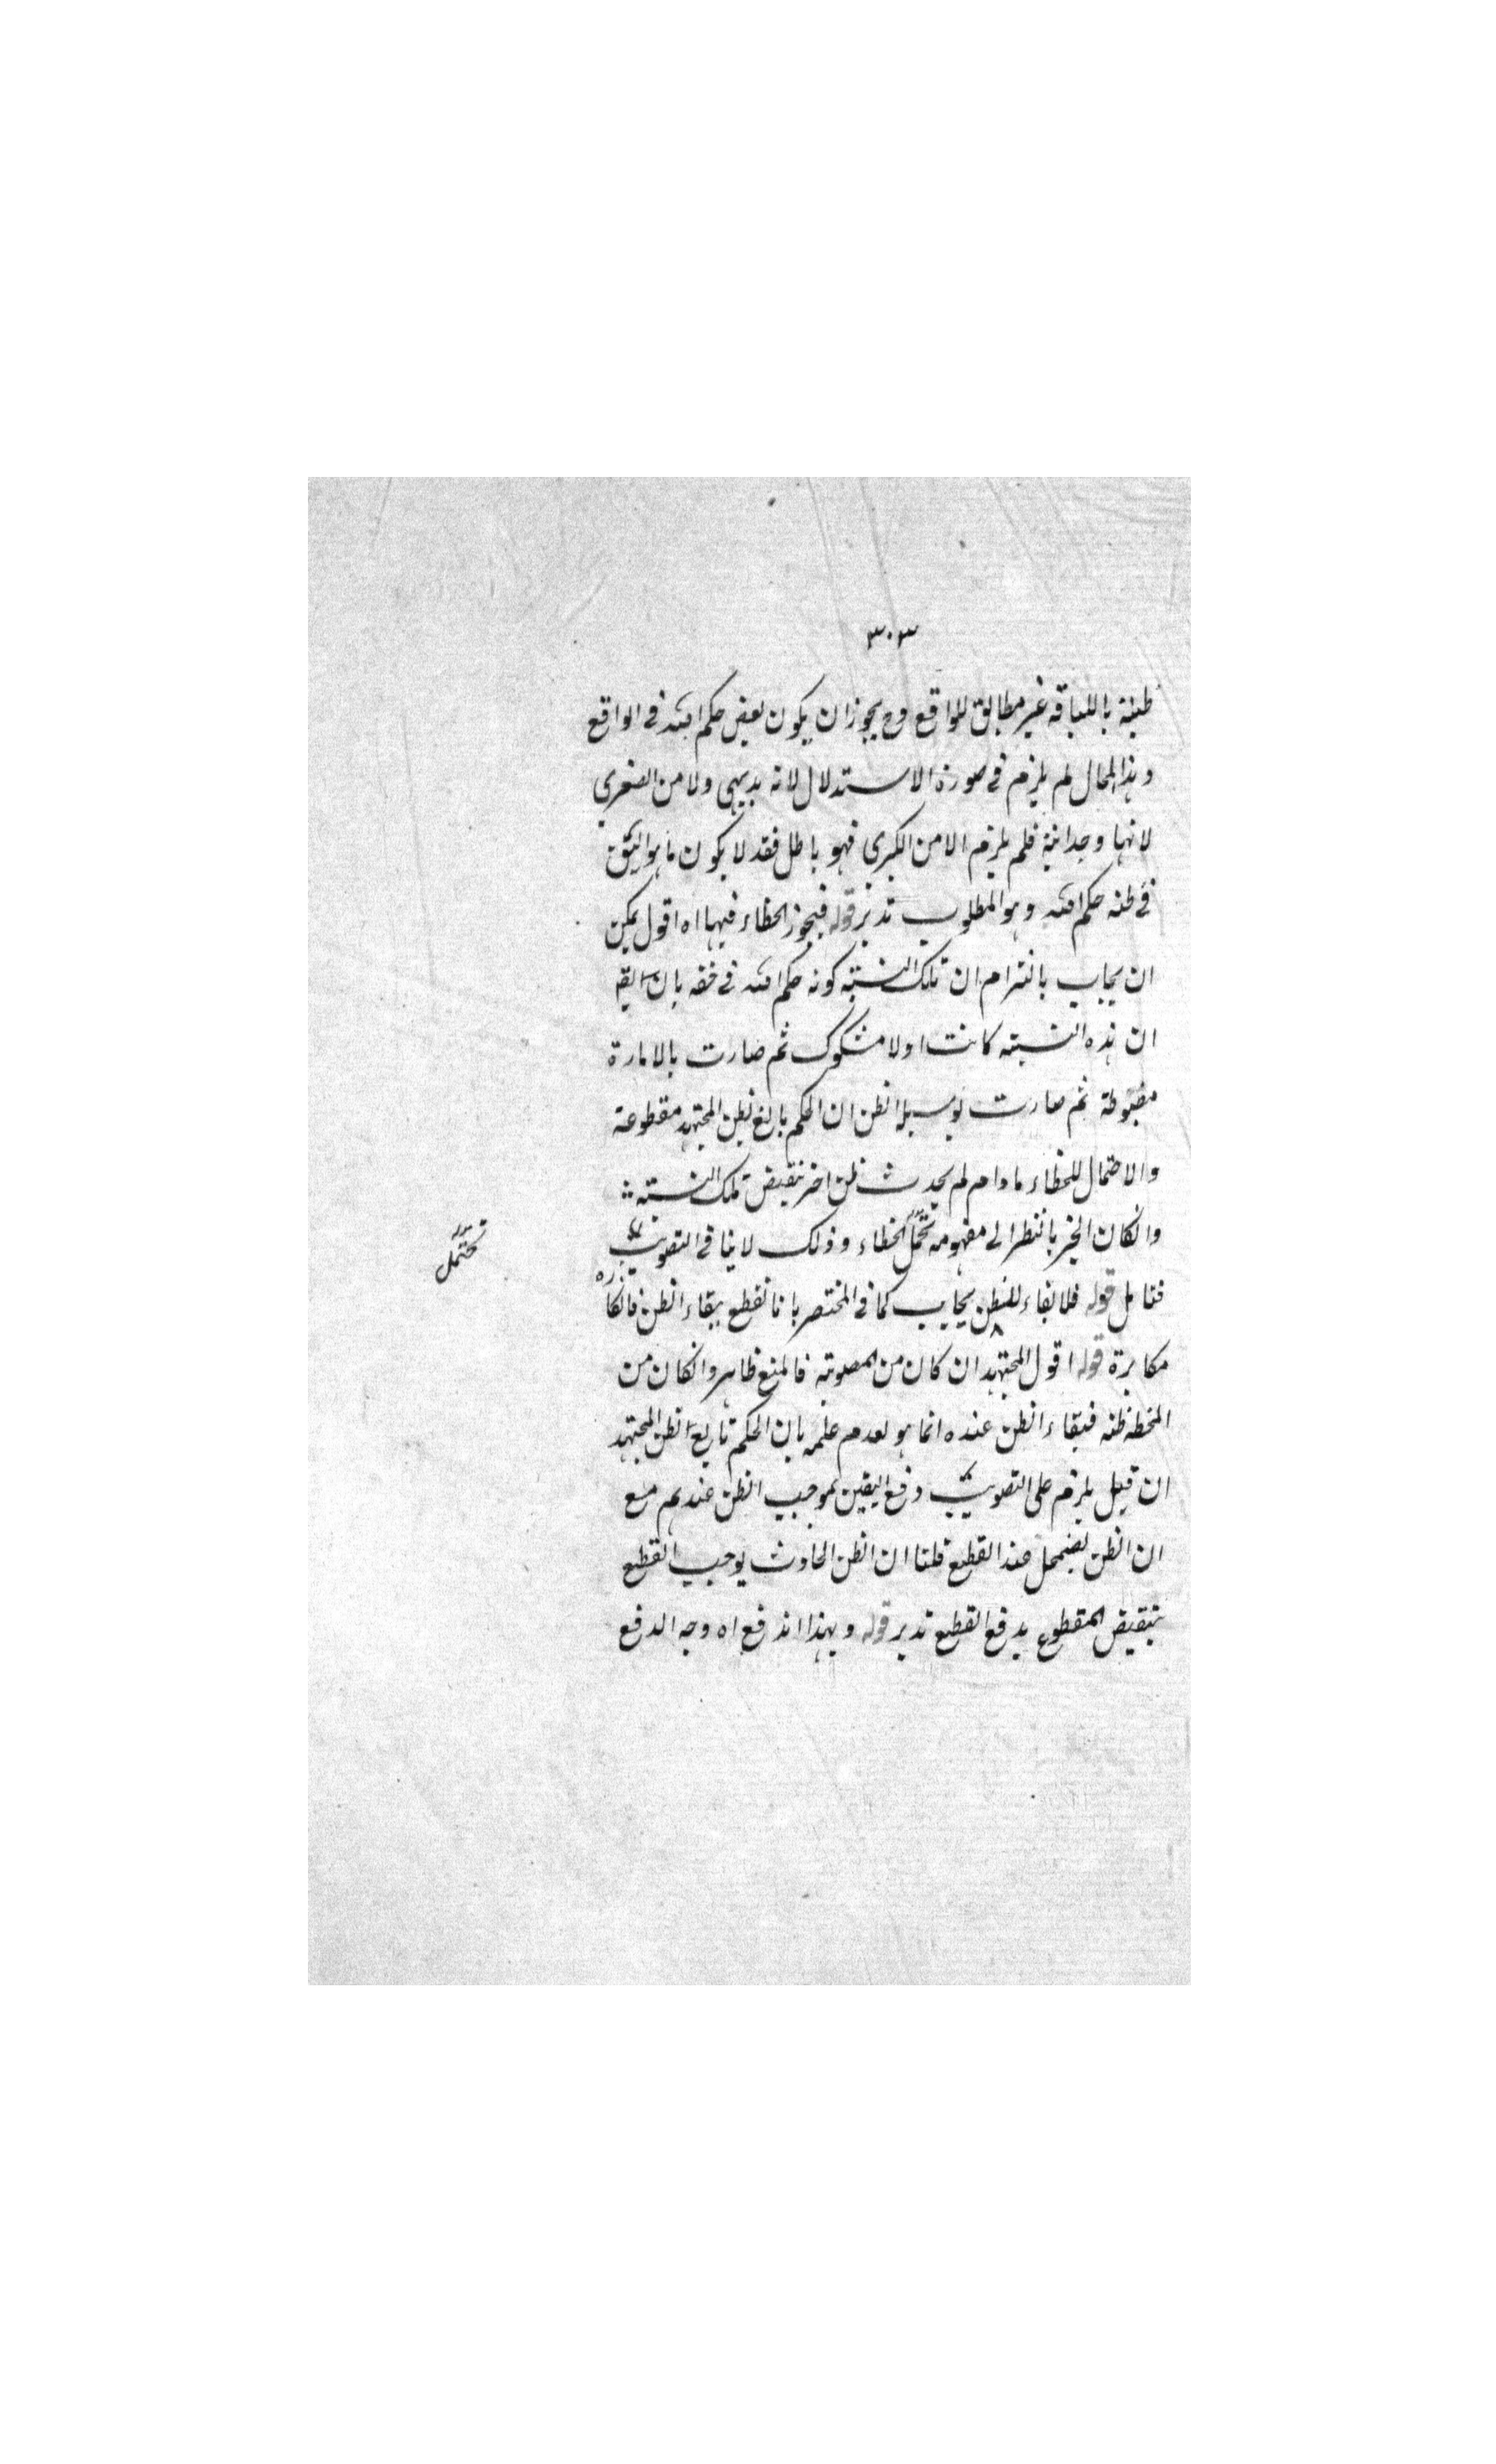 ٣٠٣
ظنه باللياقة غير مطابق للواقع وح يجوز ان يكون بعض حكم الله في الواقع
وهذا المحال لم يلزم في صورة الاستدلال لانه بديهي ولا من الصغرى
لانها وجدانية فلم يلزم الا من الكبرى فهو باطل فقد لا يكون ما هو اليق
في ظنه حكم الله وهو المطلوب تدبر قوله فيجوز الخطاء فيها اه اقول يمكن
ان يجاب بالتزام ان تلك النسبة كونه حكم الله في حقه بان
ان هذه النسبة كانت اولا مشكوك ثم صارت بالامارة
ثم صارت بوسيلة الظن ان الحكم بالغ بظن المجتهد مقطوعة
والاحتمال للخطاء ما دام لم يحدث ظن اخر بنقيض تلك النسبة
وانكان الخبر بالنظر الى مفهومه تحمل الخطاء وذلك لا ينافي التصويب
تحتمل
فتامل قوله فلا بقاء للظن يجاب كما في المختصر بانا نقطع ببقاء الظن فانكاره
مكابرة قوله اقول المجتهد ان كان من المصوبة فالمنع ظاهر وانكان من
المخطئة ظنه فبقاء الظن عنده انما هو لعدم علمه بان الحكم تابع لظن المجتهد
ان قيل يلزم على التصويب رفع اليقين بموجب الظن عندهم مع
ان الظن يضمحل عند القطع قلنا ان الظن الحادث يوجب القطع
بنقيض المقطوع يدفع القطع تدبر قوله وبهذا اندفع اه وجه الدفع